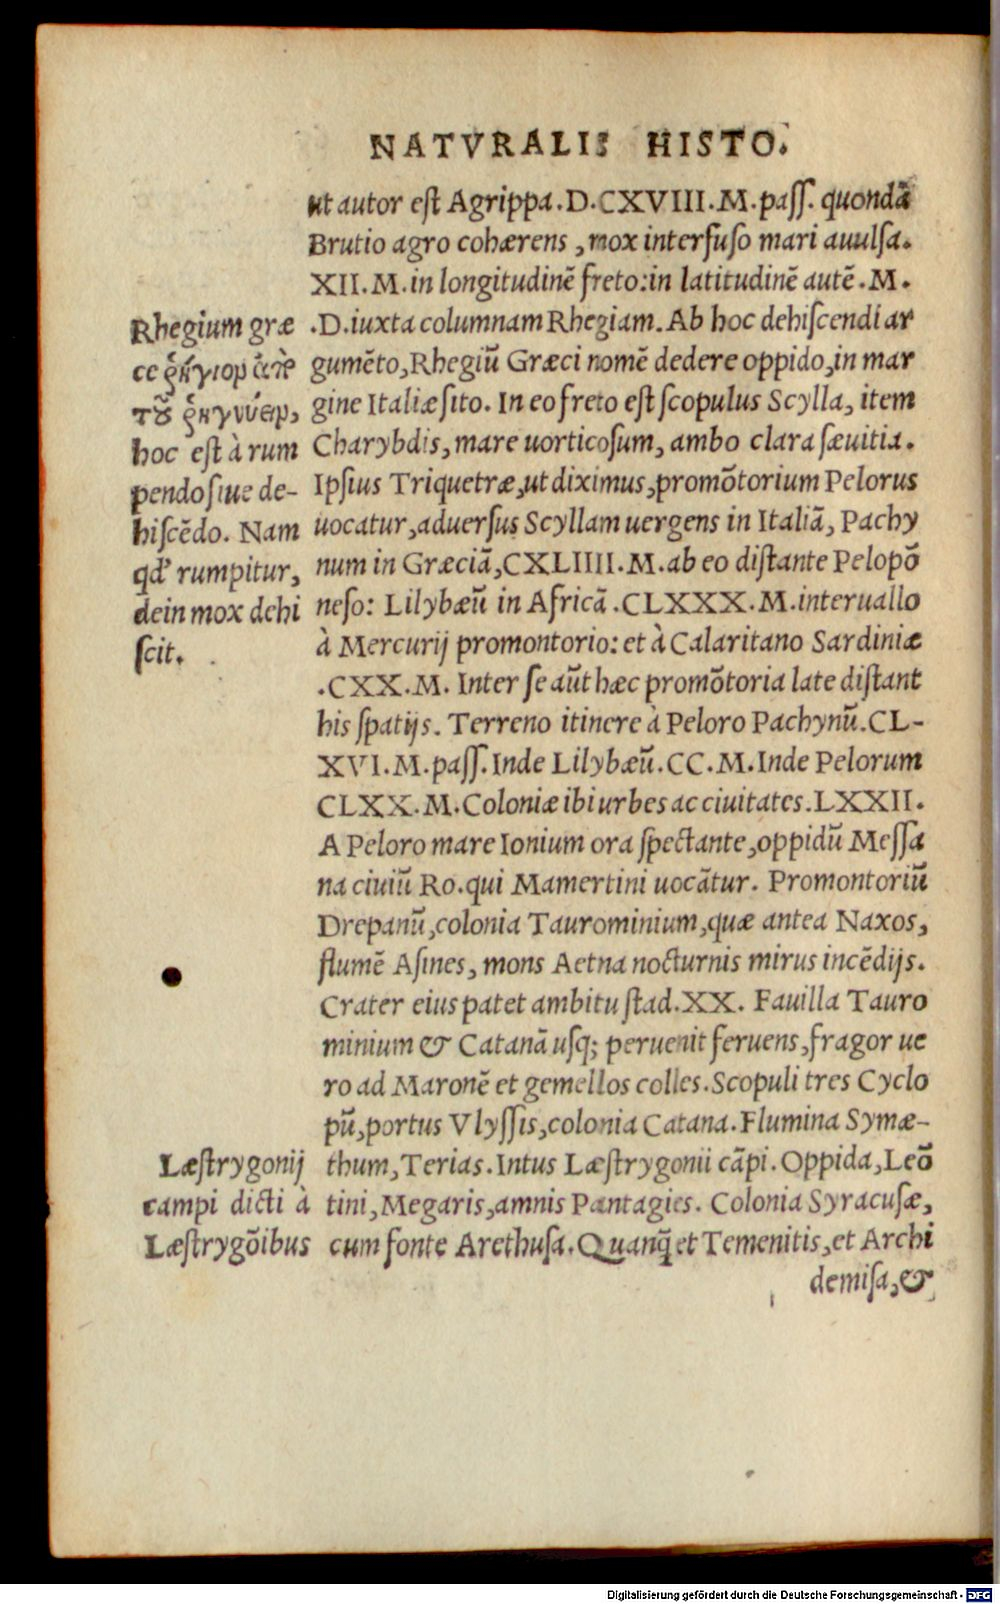 NATVRALIS HISTO.
ut autor est Agrippa.D.CXVIII.M.pass. quondã
Brutio agro cohærens, mox interfuso mari auulsa.
XII.M.in longitudinẽ freto:in latitudinẽ autẽ.M.
.D.iuxta columnam Rhegiam. Ab hoc dehiscendi ar
gumẽto, Rhegiũ Græci nomẽ dedere oppido, in mar
gine Italiæ sito. In eo freto est scopulus Scylla, item
Charybdis, mare uorticosum, ambo clara sæuitia.
Ipsius Triquetræ, ut diximus, promõtorium Pelorus
uocatur, aduersus Scyllam uergens in Italiã, Pachy
num in Græciã, CXLIIII.M.ab eo distante Pelopõ
neso: Lilybæũ in Africã.CLXXX.M.interuallo
à Mercurij promontorio: et à Calaritano Sardiniæ
.CXX.M. Inter se aũt hæc promõtoria late distant
his spatijs. Terreno itinere à Peloro Pachynũ.CL-
XVI.M.pass.Inde Lilybæũ.CC.M.Inde Pelorum
CLXX.M.Coloniæ ibi urbes ac ciuitates.LXXII.
A Peloro mare Ionium ora spectante, oppidũ Messa
na ciuiũ Ro.qui Mamertini uocãtur. Promontoriũ
Drepanũ, colonia Taurominium, quæ antea Naxos,
flumẽ Asines, mons Aetna nocturnis mirus incẽdijs.
Crater eius patet ambitu stad.XX. Fauilla Tauro
minium & Catanã usq; peruenit feruens, fragor ue
ro ad Maronẽ et gemellos colles. Scopuli tres Cyclo
pũ, portus Vlyssis, colonia Catana. Flumina Symæ-
thum, Terias. Intus Læstrygonii cãpi. Oppida, Leõ
tini, Megaris, amnis Pantagies. Colonia Syracusæ,
cum fonte Arethusa. Quanq̃ et Temenitis, et Archi
demisa, &
Rhegium græ
ce ῥήγιον ἀπὸ
τοῦ ῥηγνύειν,
hoc est à rum
pendo siue de-
hiscẽdo. Nam
qđ rumpitur,
dein mox dehi
scit.
Læstrygonij
campi dicti à
Læstrygõibus
Digitalisierung gefördert durch die Deutsche Forschungsgemeinschaft - DFG